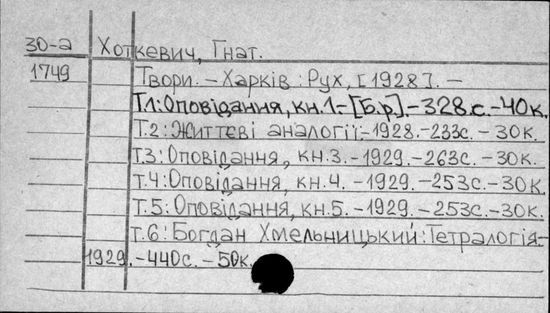 30-а Хоткевич, Гнат.
1749 Твори. - Харків: Рух, [1928]. -
Т.1: Оповідання, кн.1. - [Б.р]. - 328.с. - 40к.
Т.2: Життєві аналогії. - 1928. - 233с. - 30к.
Т.3: Оповідання, кн.3. - 1929. - 263с. - 30к.
Т.4: Оповідання, кн.4. - 1929. - 253с. - 30к.
Т.5: Оповідання, кн.5. - 1929. - 253с. - 30к.
Т.6: Богдан Хмельницький: Тетралогія. -
1929. - 440с. - 50к.